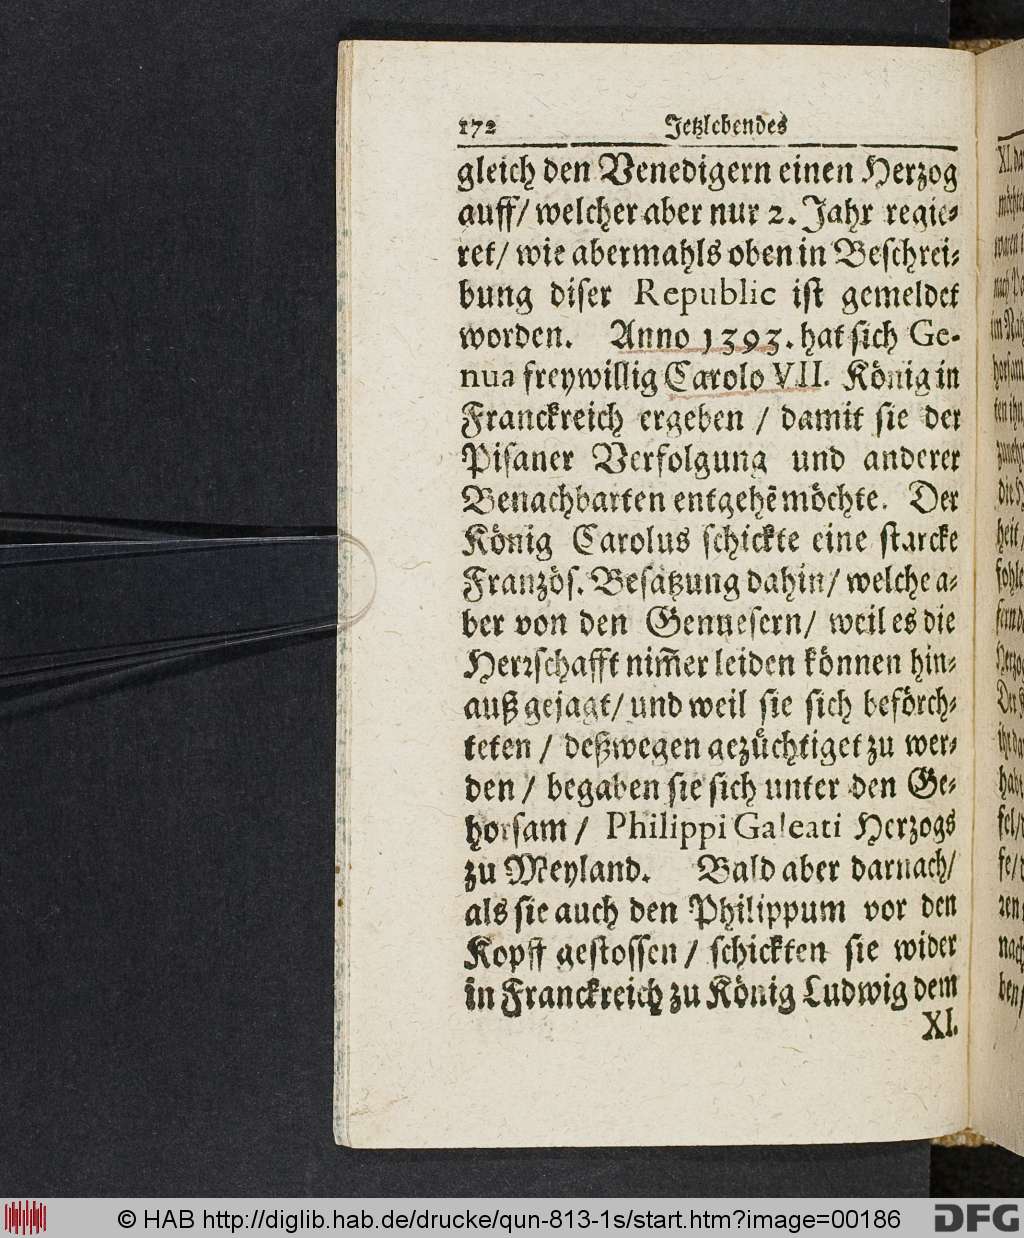 172 Jetzlebendes
gleich den Venedigern einen Herzog
auff/ welcher aber nur 2. Jahr regie-
ret/ wie abermahls oben in Beschrei-
bung diser Republic ist gemeldet
worden. Anno 1393. hat sich Ge-
nua freywillig Carolo VII. König in
Franckreich ergeben / damit sie der
Pisaner Verfolgung und anderer
Benachbarten entgehẽ möchte. Der
König Carolus schickte eine starcke
Französ. Besatzung dahin/ welche a-
ber von den Genuesern/ weil es die
Herrschafft nim̃er leiden können hin-
auß gejagt/ und weil sie sich beförch-
teten / deßwegen gezüchtiget zu wer-
den / begaben sie sich unter den Ge-
horsam / Philippi Galeati Herzogs
zu Meyland. Bald aber darnach/
als sie auch den Philippum vor den
Kopff gestossen / schickten sie wider
in Franckreich zu König Ludwig dem
XI.
© HAB http://diglib.hab.de/drucke/qun-813-1s/start.htm?image=00186
DFG